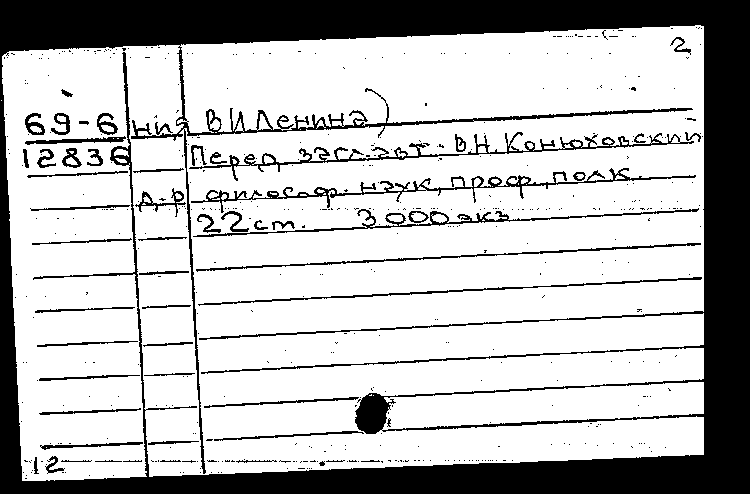 2
69-6 ния В И Ленина)
12836 Перед загл. авт. В.Н. Конюховский
д-р философ. наук, проф., полк.
22 ст. 3000 экз
12